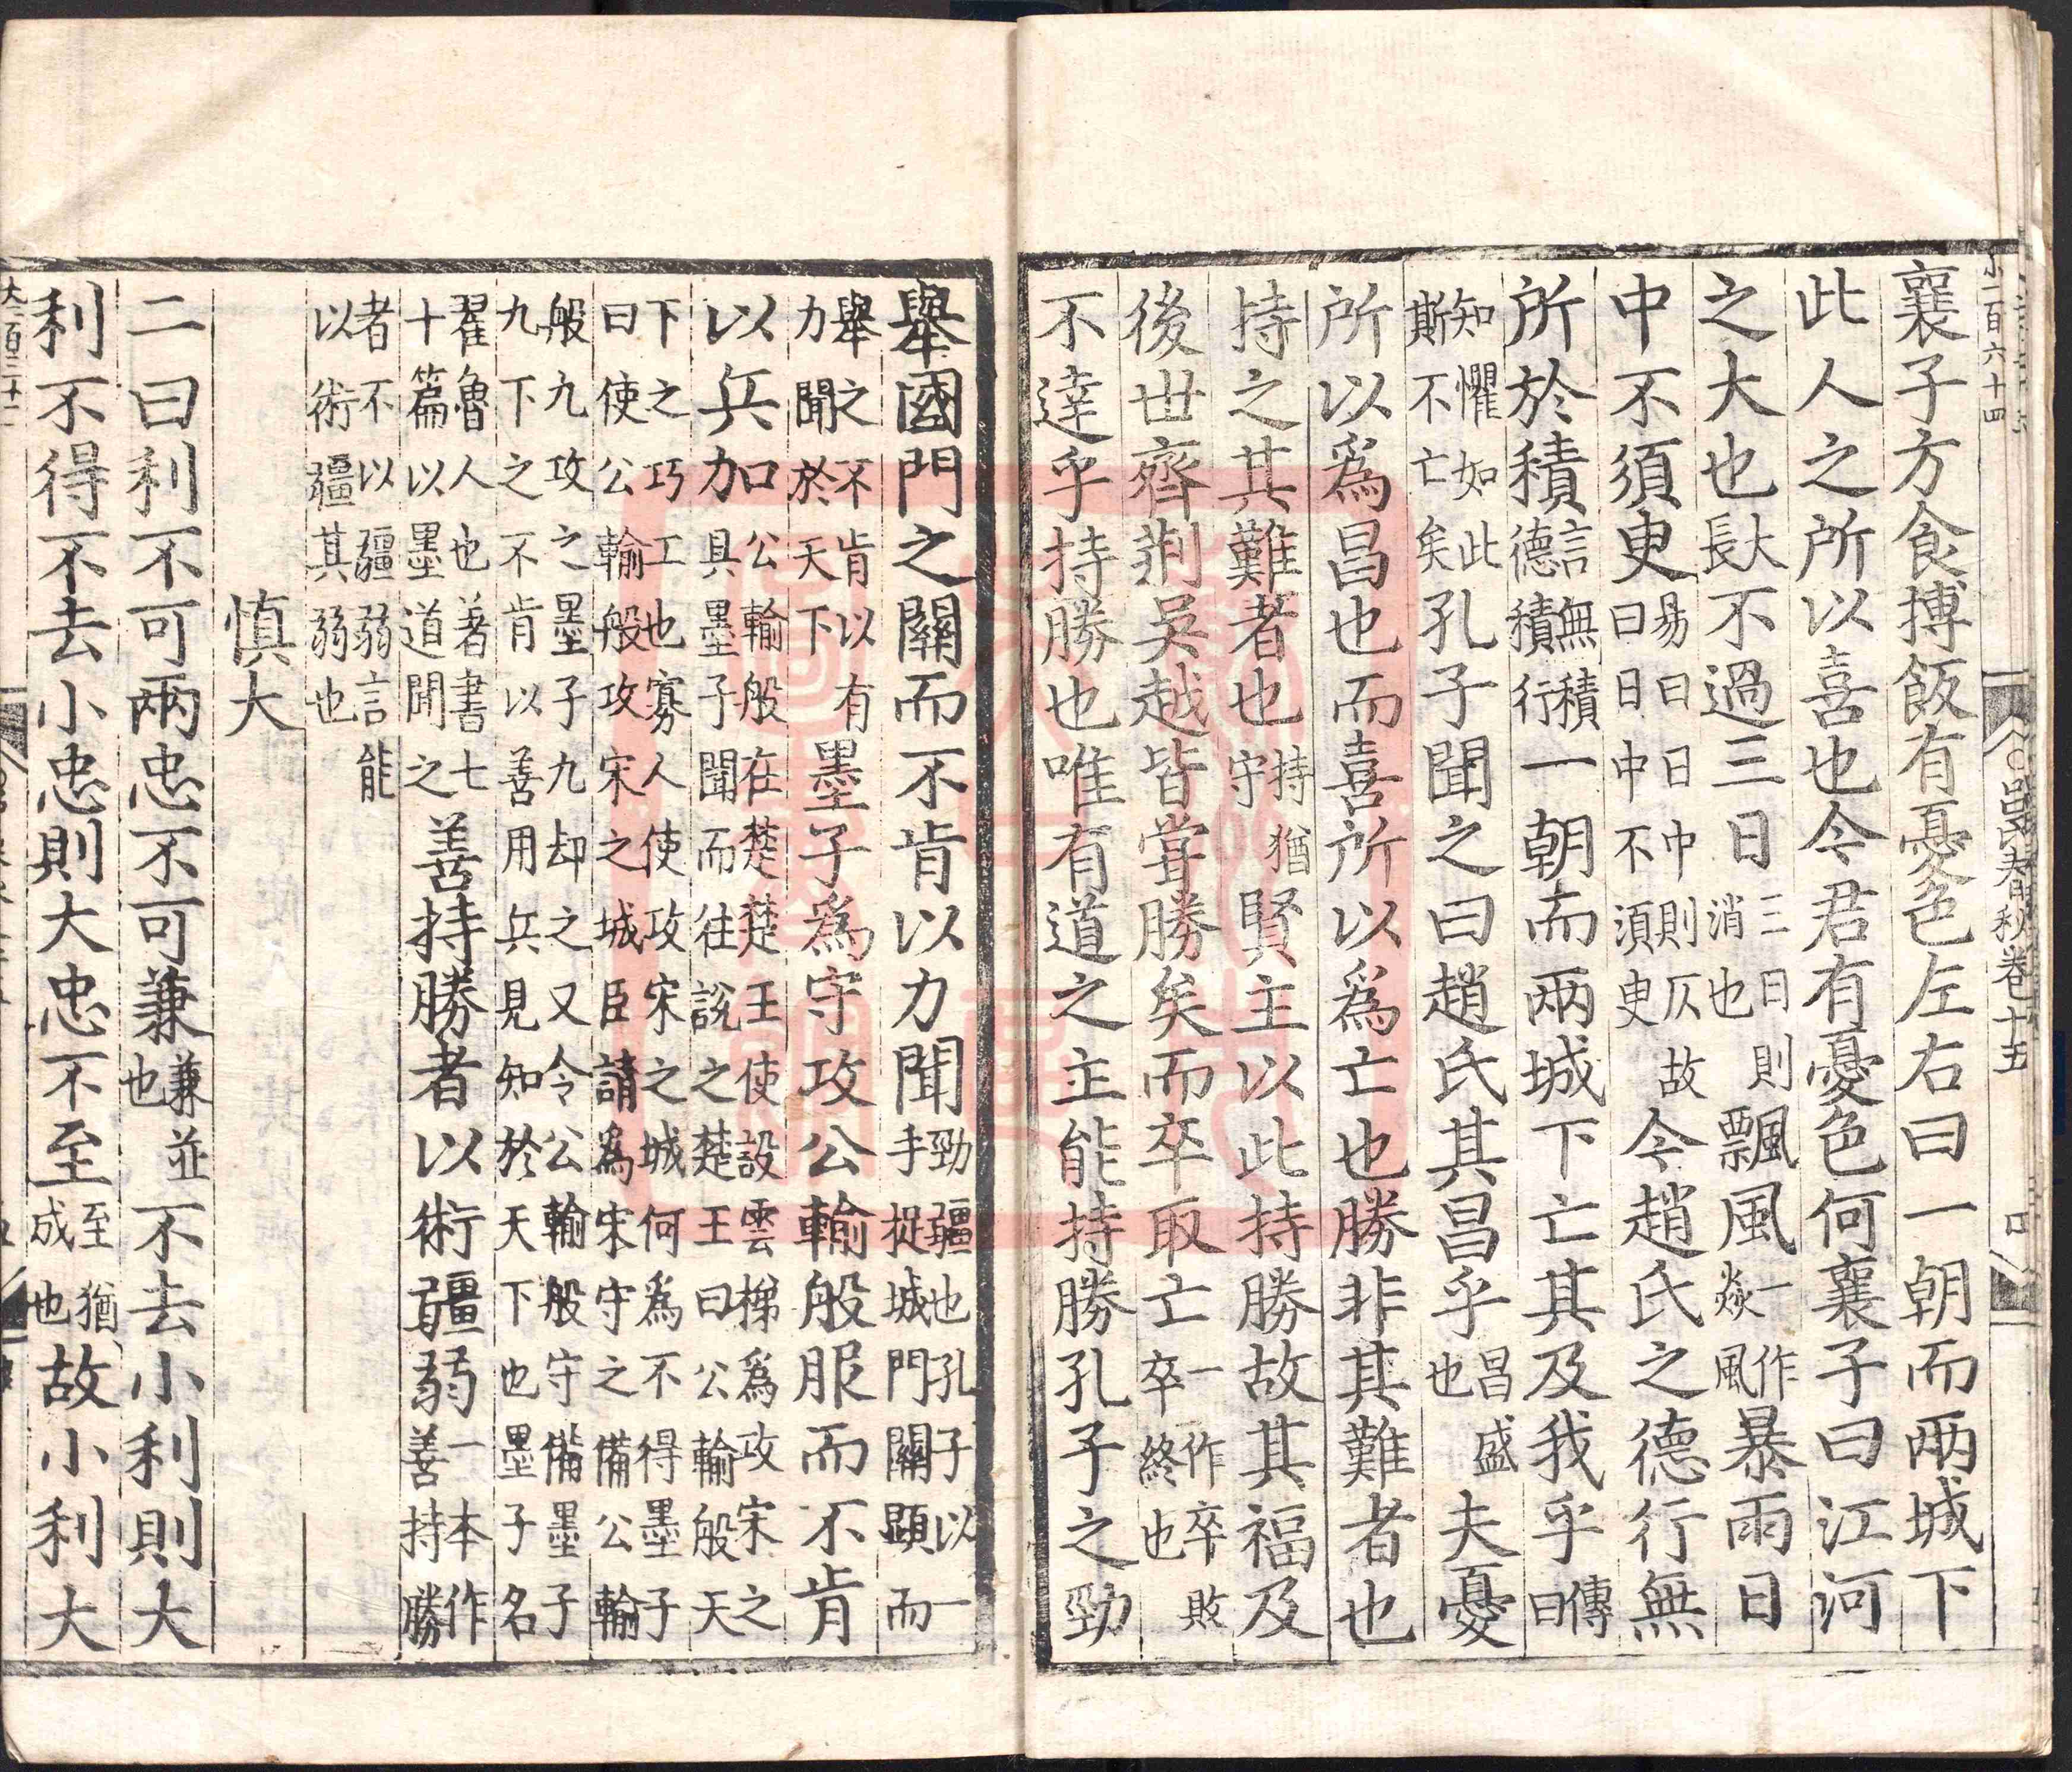 襄子方食摶飯有憂色左右曰一朝而兩城下
此人之所以喜也今君有憂色何襄子曰江河
之大也長大不過三日三日則消也飄風一作焱風暴雨日
中不須臾易曰日中則仄故曰日中不須臾今趙氏之德行無
所於積言無積德積行一朝而兩城下亡其及我乎傳曰
知懼如此斯不亡矣孔子聞之曰趙氏其昌乎昌盛也夫憂
所以爲昌也而喜所以爲亡也勝非其難者也
持之其難者也持猶守賢主以此持勝故其福及
後世齊荆吳越皆嘗勝矣而卒取亡一作卒敗卒終也
不達乎持勝也唯有道之主能持勝孔子之勁
吕氏春秋卷十五
四
小二百六十四
舉國門之關而不肯以力聞勁彊也孔子以一手捉城門關顯而
舉之不肯以有力聞於天下墨子爲守攻公輸般服而不肯
以兵加公輸般在楚楚王使設雲梯爲攻宋之具墨子聞而往說之楚王曰公輸般天
下之巧工也寡人使攻宋之城何爲不得墨子曰使公輸般攻宋之城臣請爲宋守之備公輸
般九攻之墨子九却之又令公輸般守備墨子九下之不肯以善用兵見知於天下也墨子名
翟魯人也著書七十篇以墨道聞之善持勝者以術彊弱一本作善持勝
者不以彊弱言能以術彊其弱也
慎大
二曰利不可兩忠不可兼兼並也不去小利則大
利不得不去小忠則大忠不至至猶成也故小利大
大百三十二